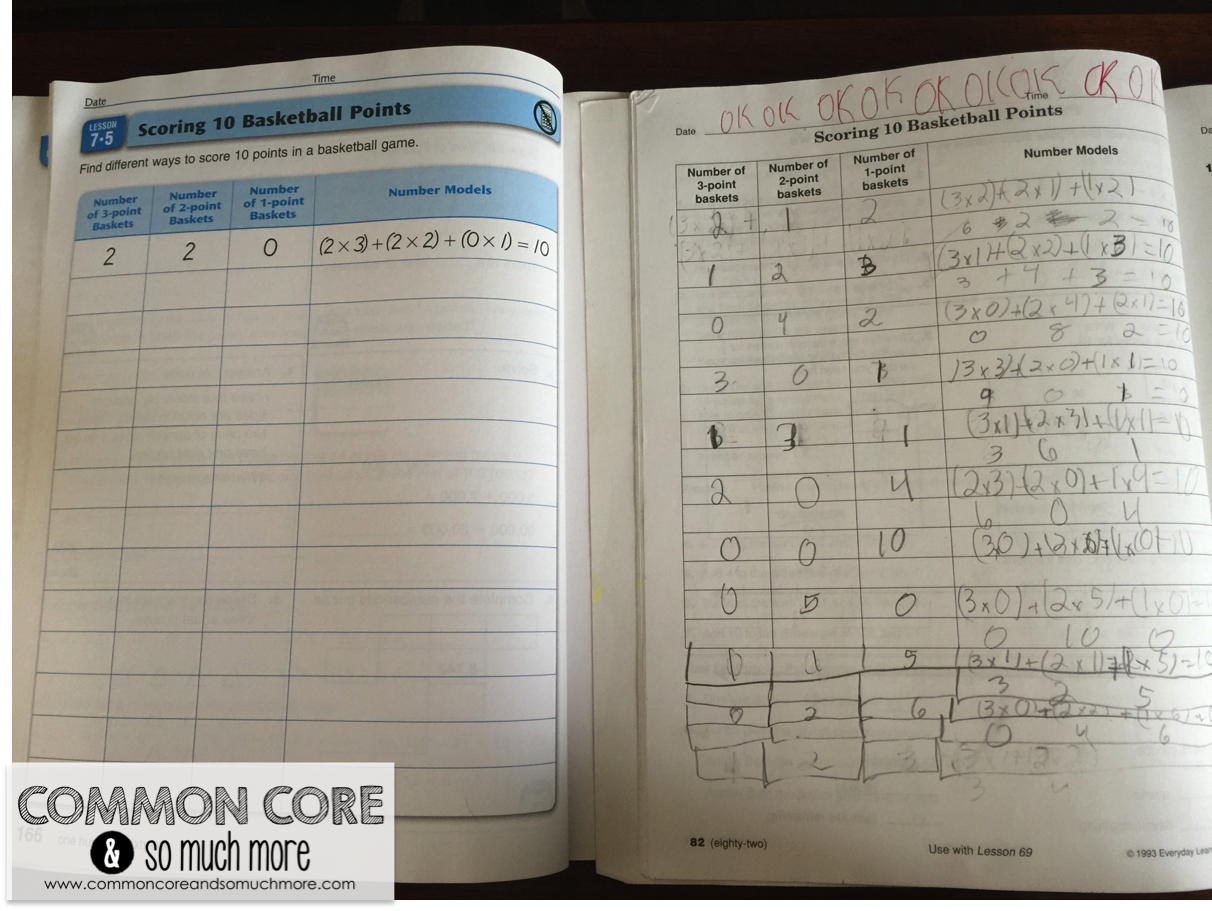 Time
Date
LESSON
7•5
Scoring 10 Basketball Points
Find different ways to score 10 points in a basketball game.
Number of 3-point Baskets
Number of 2-point Baskets
Number of 1-point Baskets
Number Models
2 2 0 (2 × 3) + (2 × 2) + (0 × 1) = 10
166
COMMON CORE
& so much more
www.commoncoreandsomuchmore.com
OK OK OK OK OK OK OK OK OK
Date Time
Scoring 10 Basketball Points
Number of 3-point baskets
Number of 2-point baskets
Number of 1-point baskets
Number Models
2 1 2 (3×2)+(2×1)+(1×2)
6 2 2 = 10
1 2 3 (3×1)+(2×2)+(1×3)=10
3 + 4 + 3 = 10
0 4 2 (3×0)+(2×4)+(2×1)=10
0 8 2 = 10
3 0 1 (3×3)+(2×0)+(1×1)=10
9 0 1
3 1 (3×1)+(2×3)+(1×1)=10
3 6 1
2 0 4 (2×3)+(2×0)+1×4=10
6 0 4
0 0 10
0 5 0 (3×0)+(2×5)+(1×0)
0 10 0
1 5 (3×1)+(2×1)
3 2 5
0 2 6 (3×0)+(2×2)
0 4 6
1 2 3
3 4
82 (eighty-two)
Use with Lesson 69
© 1993 Everyday